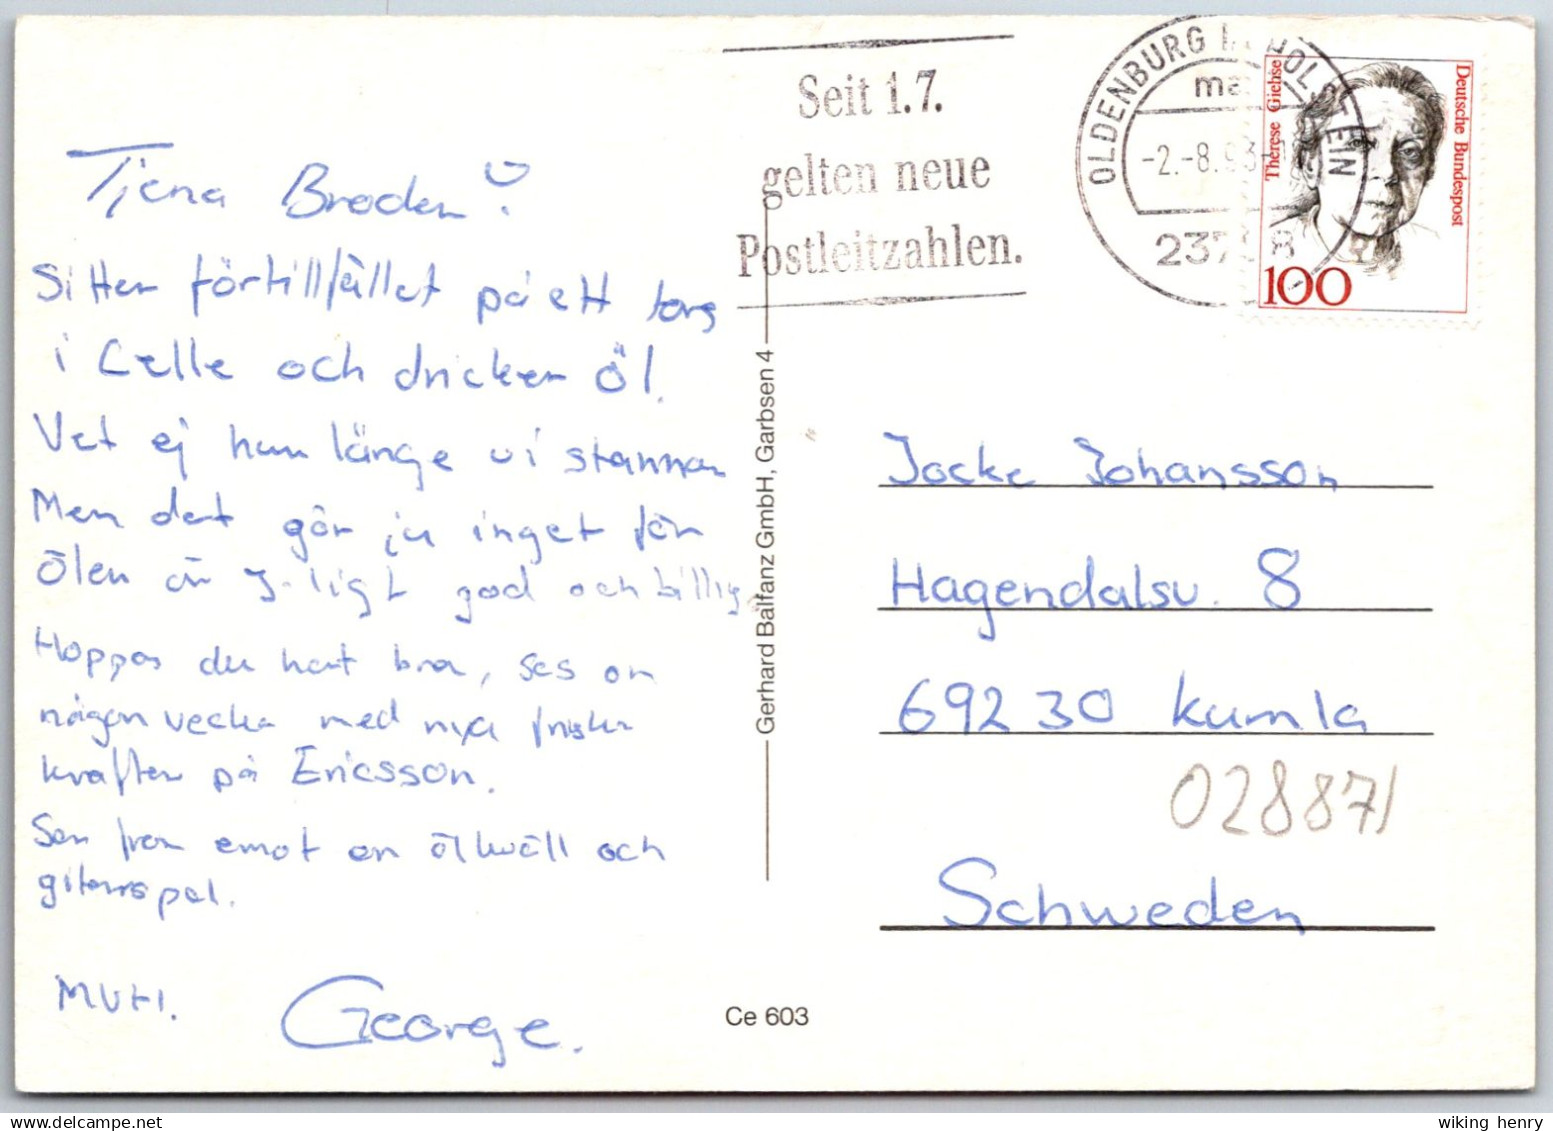 Tjena Broder!
Sitter förtillfället på ett torg
i Celle och dricker öl.
Vet ej hur länge vi stannar
Men det gör ju inget för
ölen är J-ligt god och billig
Hoppas du haft bra, ses om
någon vecka med nya friska
krafter på Ericsson.
Ser fram emot en ölkväll och
gitarrspel.
MVH.
George.
Seit 1.7.
gelten neue
Postleitzahlen.
OLDENBURG HOLSTEIN
-2.-8.93
Therese Giehse
Deutsche Bundespost
100
Gerhard Balfanz GmbH, Garbsen 4
Jocke Johansson
Hagendalsv. 8
69230 Kumla
028871
Schweden
Ce 603
wiking henry